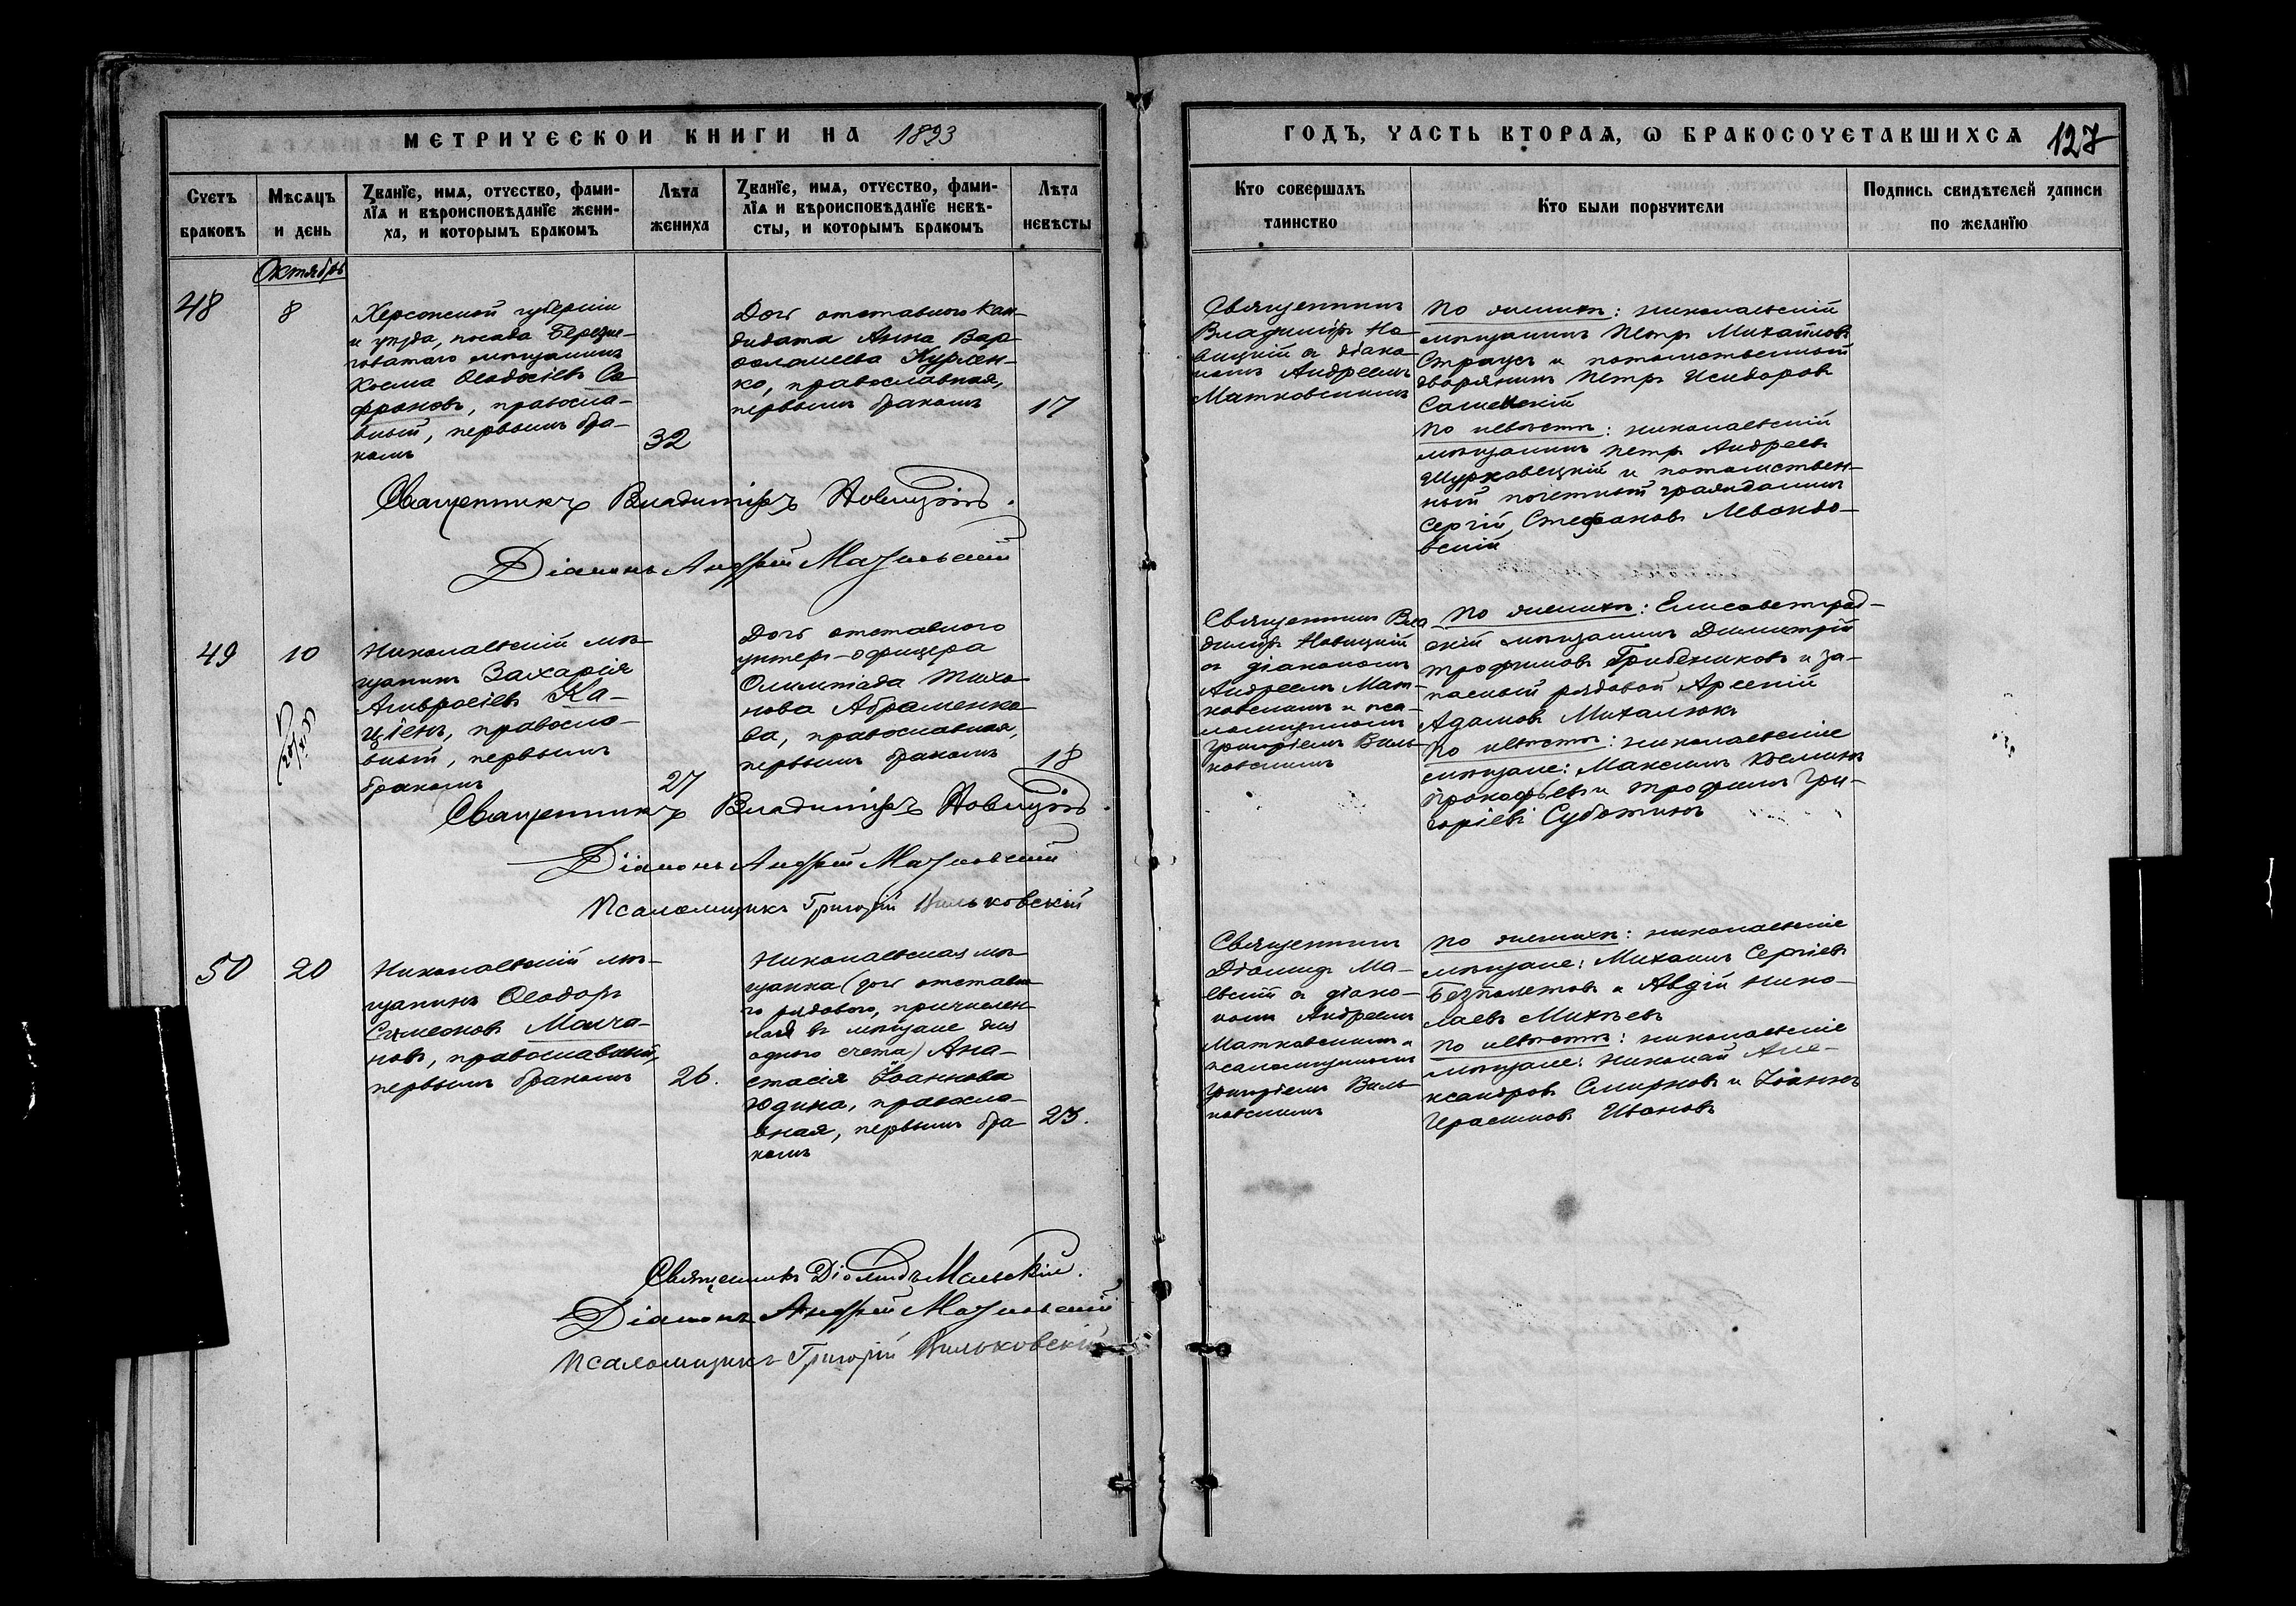 МЕТРИЧЕСКОЙ КНИГИ НА 1893
ГОДЪ, ЧАСТЬ ВТОРАЯ, Ѡ БРАКОСОЧЕТАВШИХСЯ 127
Счетъ
браковъ
Мѣсяцъ
и день
Званїе, имя, отчество, фами-
лїя и вѣроисповѣданїе жени-
ха, и которымъ бракомъ
Лѣта
жениха
Званїе, имя, отчество, фами-
лїя и вѣроисповѣданїе невѣ-
сты, и которымъ бракомъ
Лѣта
невѣсты
Кто совершалъ
таинство
Кто были поручители
Подпись свидѣтелей записи
по желанїю
Октябрь
48
8
Херсонской губерніи
и уѣзда, посада Березне-
говатаго мѣщанинъ
Косма Ѳеодосіевъ Са
фроновъ, правосла-
вный, первымъ бра-
комъ
32
Дочь отставного кан-
дидата Анна Вар
ѳоломеева Курлен-
ко, православная,
первымъ бракомъ
17
Священникъ
Владиміръ Но-
вицкій съ діако-
номъ Андреемъ
Матковскимъ
По женихѣ: николаевскій
мѣщанинъ Петръ Михайловъ
Страусъ и потомственный
дворянинъ Петръ Исидоровъ
Сашевскій
По невѣстѣ: николаевскій
мѣщанинъ Петръ Андреевъ
Шурхавецкій и потомствен-
ный почетный гражданинъ
Сергій Стефановъ Левандо-
вскій
Священникъ Владиміръ Новицкій.
Діаконъ Андрей Матковскій
49
10
Николаевскій мѣ-
щанинъ Захарія
Амвросіевъ Ка-
ціенъ, правосла-
вный, первымъ
бракомъ
27
Дочь отставного
унтеръ-офицера
Олимпіада Тихо-
нова Абраменко-
ва, православная,
первымъ бракомъ
18
Священникъ Вла
диміръ Новицкій
съ діакономъ
Андреемъ Мат-
ковскимъ и пса-
ломщикомъ
Григоріемъ Виль-
ковскимъ
По женихѣ: Елисаветград-
скій мѣщанинъ Димитрій
Трофимовъ Грибениковъ и за-
пасный рядовой Арсеній
Адамовъ Михалюкъ
По невѣстѣ: николаевскіе
мѣщане: Максимъ Косминъ
Прокофьевъ и Трофимъ Гри-
горіевъ Суботинъ
Священникъ Владиміръ Новицкій.
Діаконъ Андрей Матковскій
Псаломщикъ Григорій Вильковскій
50
20
Николаевскій мѣ-
щанинъ Ѳеодоръ
Симеоновъ Молча-
новъ, православный,
первымъ бракомъ
26.
Николаевская мѣ-
щанка (дочь отставно
го рядового, причислен-
ная въ мѣщане для
одного счета) Ана-
стасія Іоаннова
Юдина, правосла-
вная, первымъ бра-
комъ
23.
Священникъ
Діомидъ Ма-
евскій съ діако-
номъ Андреемъ
Матковскимъ и
псаломщикомъ
Григоріемъ Виль-
ковскимъ
По женихѣ: николаевскіе
мѣщане: Михаилъ Сергіевъ
Безполетовъ и Авдій Нико-
лаевъ Михѣевъ
По невѣстѣ: николаевскіе
мѣщане: Николай Але-
ксандровъ Смирновъ и Іоаннъ
Герасимовъ Ивановъ
Священникъ Діомидъ Маевскій.
Діаконъ Андрей Матковскій
Псаломщикъ Григорій Вильковскій